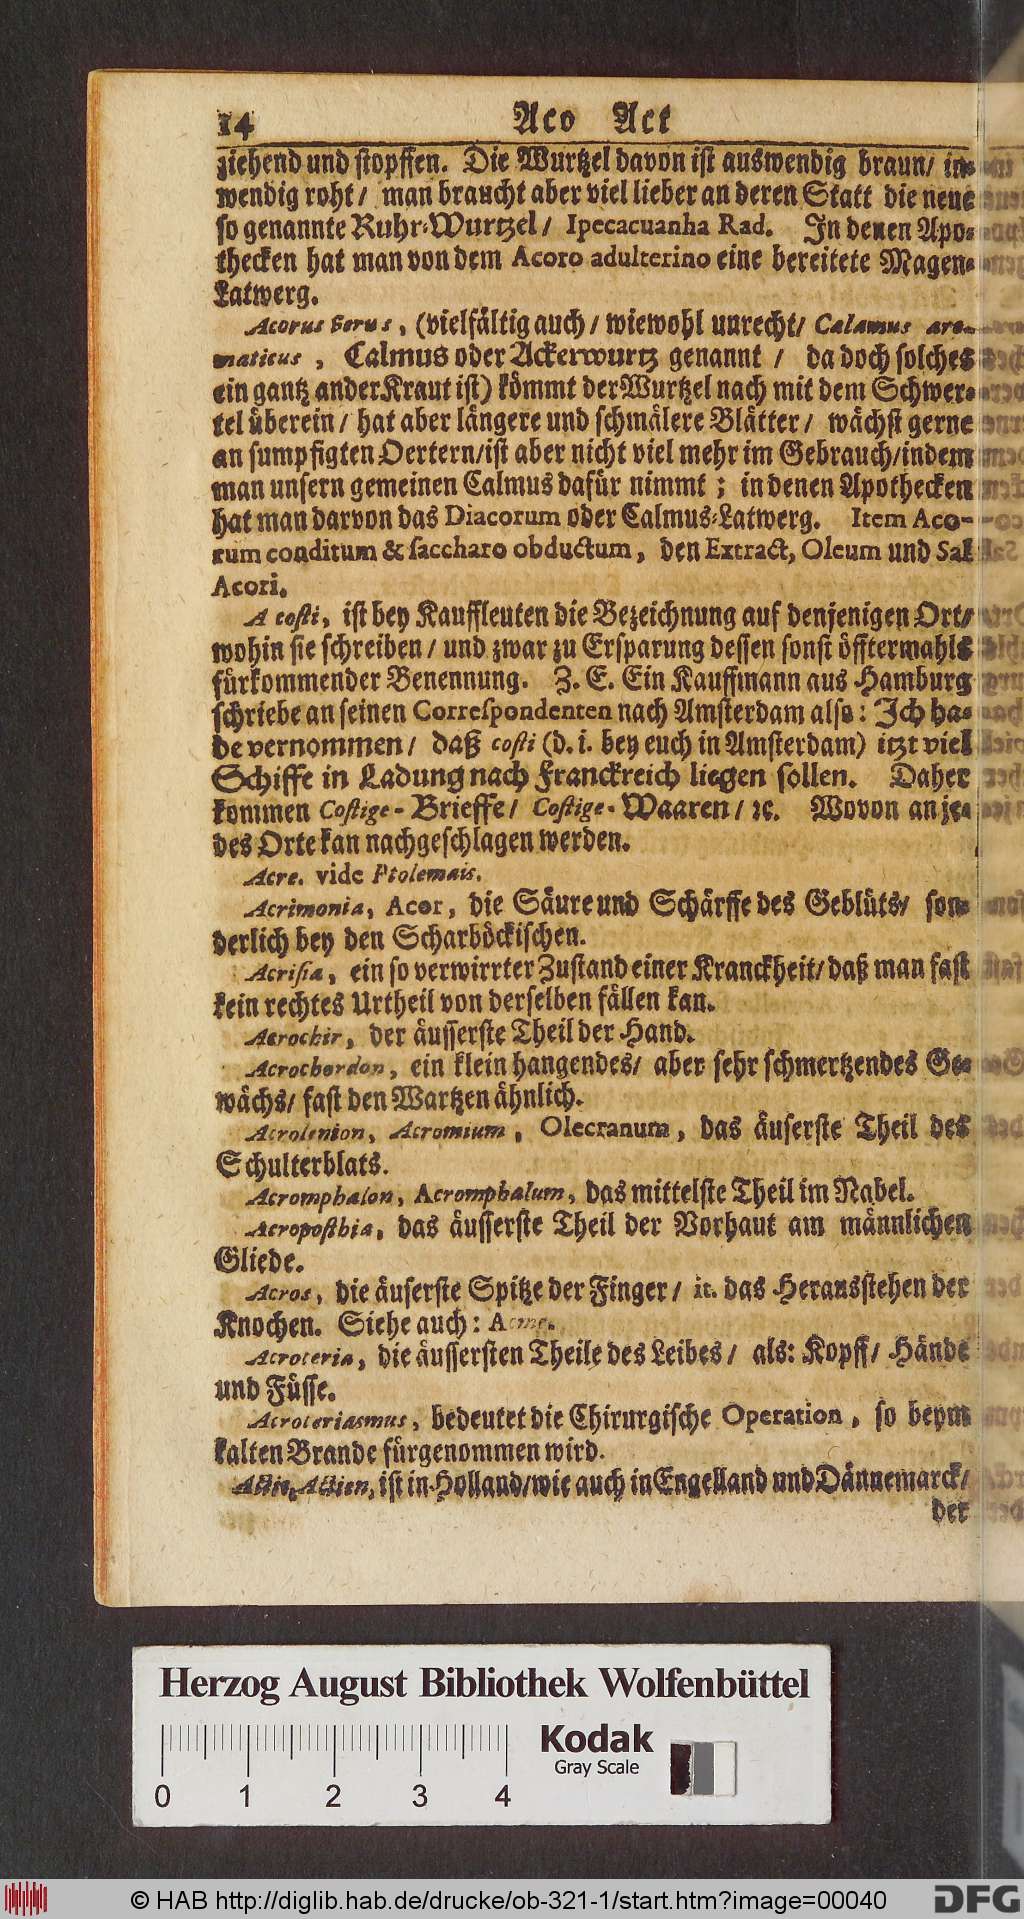 14 Aco Act
ziehend und stopffen. Die Wurtzel davon ist auswendig braun/ in-
wendig roht/ man braucht aber viel lieber an deren Statt die neue
so genannte Ruhr-Wurtzel/ Ipecacuanha Rad. In denen Apo-
thecken hat man von dem Acoro adulterino eine bereitete Magen-
Latwerg.
Acorus verus, (vielfältig auch/ wiewohl unrecht/ Calamus aro-
maticus, Calmus oder Ackerwurtz genannt/ da doch solches
ein gantz ander Kraut ist) kömmt der Wurtzel nach mit dem Schwer-
tel überein/ hat aber längere und schmälere Blätter/ wächst gerne
an sumpfigten Oertern/ist aber nicht viel mehr im Gebrauch/indem
man unsern gemeinen Calmus dafür nimmt; in denen Apothecken
hat man darvon das Diacorum oder Calmus-Latwerg. Item Aco-
rum conditum & saccharo obductum, den Extract, Oleum und Sal
Acori.
A costi, ist bey Kauffleuten die Bezeichnung auf denjenigen Ort/
wohin sie schreiben/ und zwar zu Ersparung dessen sonst öfftermahls
fürkommender Benennung. Z. E. Ein Kauffmann aus Hamburg
schriebe an seinen Correspondenten nach Amsterdam also: Ich ha-
be vernommen/ daß costi (d. i. bey euch in Amsterdam) itzt viel
Schiffe in Ladung nach Franckreich liegen sollen. Daher
kommen Costige-Brieffe/ Costige-Waaren/ ꝛc. Wovon an je-
des Orte kan nachgeschlagen werden.
Acre. vide Ptolemais.
Acrimonia, Acor, die Säure und Schärffe des Geblüts/ son-
derlich bey den Scharböckischen.
Acrisia, ein so verwirrter Zustand einer Kranckheit/ daß man fast
kein rechtes Urtheil von derselben fällen kan.
Acrochir, der äusserste Theil der Hand.
Acrochordon, ein klein hangendes/ aber sehr schmertzendes Ge-
wächs/ fast den Wartzen ähnlich.
Acrolenion, Acromium, Olecranum, das äuserste Theil des
Schulterblats.
Acromphalon, Acromphalum, das mittelste Theil im Nabel.
Acroposthia, das äusserste Theil der Vorhaut am männlichen
Gliede.
Acros, die äuserste Spitze der Finger/ it. das Herausstehen der
Knochen. Siehe auch: Acme.
Acroteria, die äussersten Theile des Leibes/ als: Kopff/ Hände
und Füsse.
Acroteriasmus, bedeutet die Chirurgische Operation, so beym
kalten Brande fürgenommen wird.
Actie, Actien, ist in Holland/wie auch in Engelland und Dännemarck/
der
Herzog August Bibliothek Wolfenbüttel
Kodak
Gray Scale
0 1 2 3 4
© HAB http://diglib.hab.de/drucke/ob-321-1/start.htm?image=00040
DFG